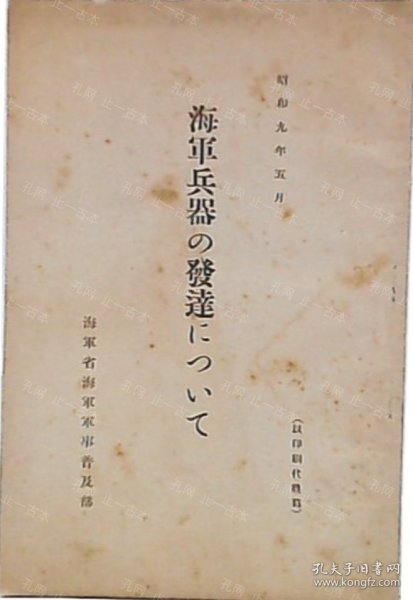 昭和九年五月
海軍兵器の發達について
(以印刷代謄寫)
海軍省海軍軍事普及部
孔网 止一古本
孔夫子旧书网
www.kongfz.com